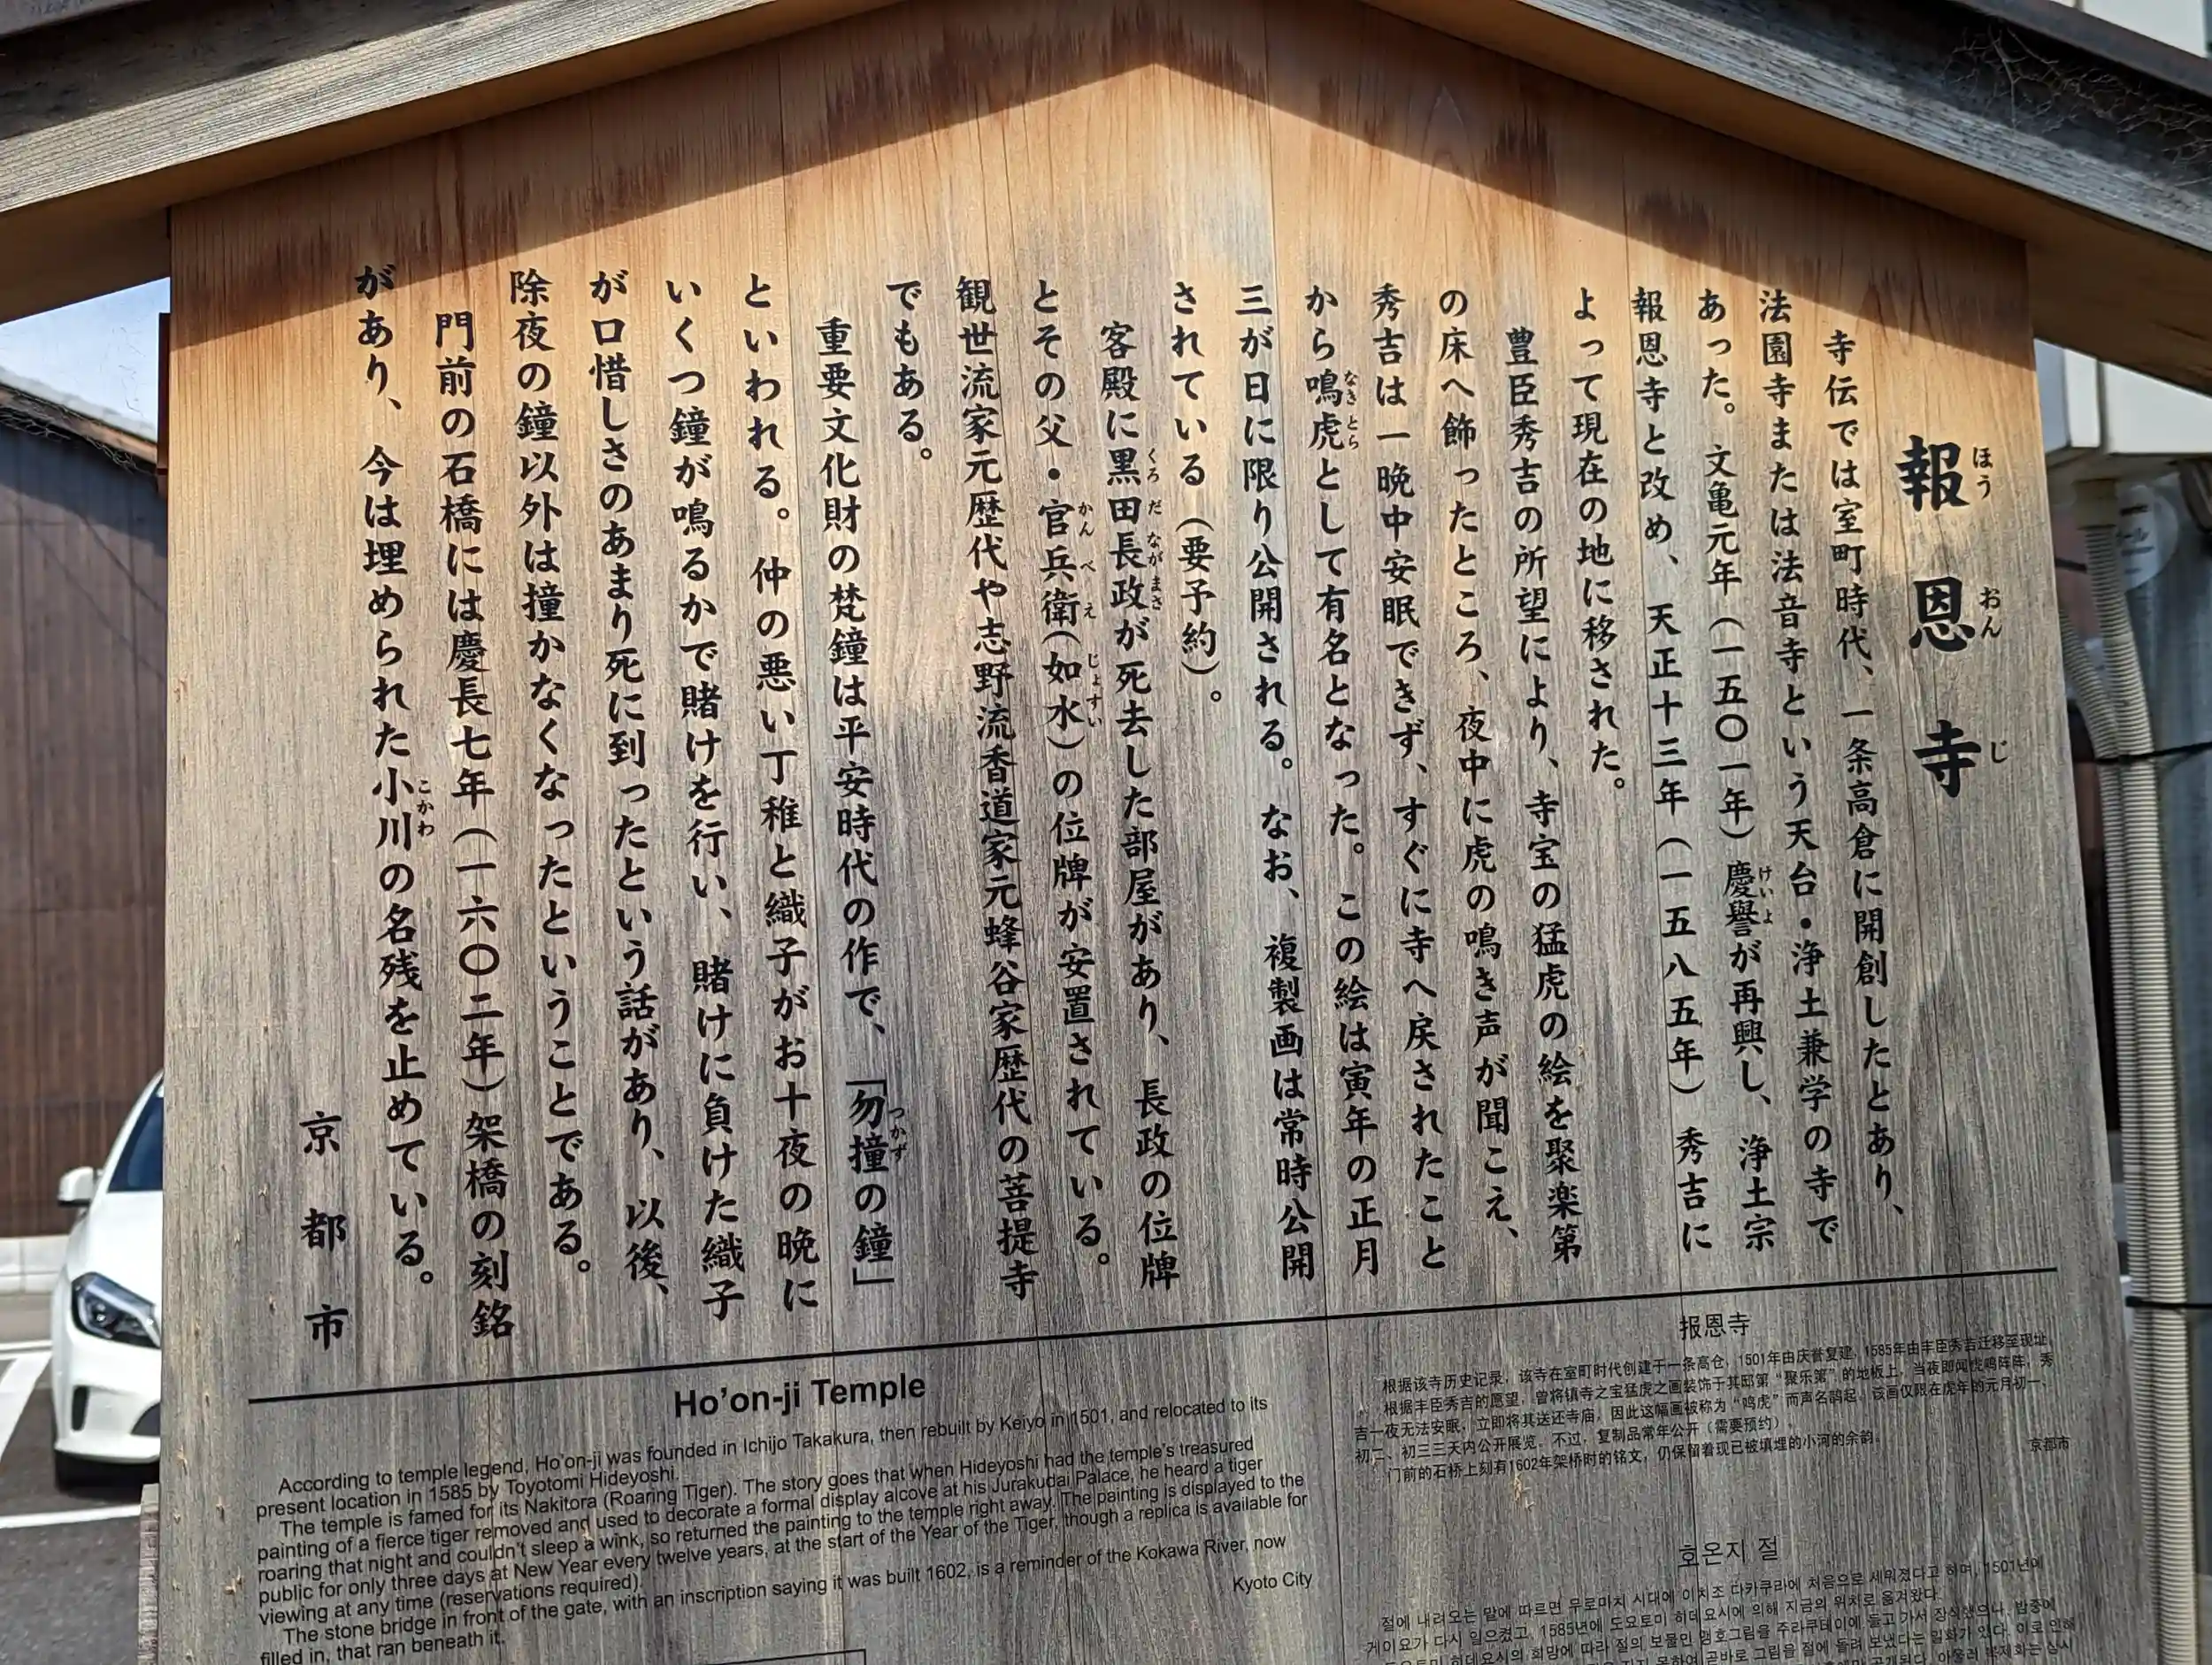 報恩寺
ほうおんじ
寺伝では室町時代、一条高倉に開創したとあり、
法園寺または法音寺という天台・浄土兼学の寺で
あった。文亀元年(一五〇一年)慶誉が再興し、浄土宗
けいよ
報恩寺と改め、天正十三年(一五八五年)秀吉に
よって現在の地に移された。
豊臣秀吉の所望により、寺宝の猛虎の絵を聚楽第
の床へ飾ったところ、夜中に虎の鳴き声が聞こえ、
秀吉は一晩中安眠できず、すぐに寺へ戻されたこと
から鳴虎として有名となった。この絵は寅年の正月
なきとら
三が日に限り公開される。なお、複製画は常時公開
されている(要予約)。
客殿に黒田長政が死去した部屋があり、長政の位牌
くろだながまさ
とその父・官兵衛(如水)の位牌が安置されている。
かんべえ じょすい
観世流家元歴代や志野流香道家元蜂谷家歴代の菩提寺
でもある。
重要文化財の梵鐘は平安時代の作で、「勿撞の鐘」
つかず
といわれる。仲の悪い丁稚と織子がお十夜の晩に
いくつ鐘が鳴るかで賭けを行い、賭けに負けた織子
が口惜しさのあまり死に到ったという話があり、以後、
除夜の鐘以外は撞かなくなったということである。
門前の石橋には慶長七年(一六〇二年)架橋の刻銘
があり、今は埋められた小川の名残を止めている。
こかわ
京都市
Ho'on-ji Temple
According to temple legend, Ho'on-ji was founded in Ichijo Takakura, then rebuilt by Keiyo in 1501, and relocated to its
present location in 1585 by Toyotomi Hideyoshi.
The temple is famed for its Nakitora (Roaring Tiger). The story goes that when Hideyoshi had the temple's treasured
painting of a fierce tiger removed and used to decorate a formal display alcove at his Jurakudai Palace, he heard a tiger
roaring that night and couldn't sleep a wink, so returned the painting to the temple right away. The painting is displayed to the
public for only three days at New Year every twelve years, at the start of the Year of the Tiger, though a replica is available for
viewing at any time (reservations required).
The stone bridge in front of the gate, with an inscription saying it was built 1602, is a reminder of the Kokawa River, now
filled in, that ran beneath it.
Kyoto City
报恩寺
根据该寺历史记录，该寺在室町时代创建于一条高仓，1501年由庆誉复建，1585年由丰臣秀吉迁移至现址。
根据丰臣秀吉的愿望，曾将镇寺之宝猛虎之画装饰于其邸第“聚乐第”的地板上，当夜即闻虎鸣阵阵，秀
吉一夜无法安眠，立即将其送还寺庙，因此这幅画被称为“鸣虎”而声名鹊起。该画仅限在虎年的元月初一、
初二、初三三天内公开展览。不过，复制品常年公开（需要预约）。
门前的石桥上刻有1602年架桥时的铭文，仍保留着现已被填埋的小河的余韵。
京都市
호온지 절
절에 내려오는 말에 따르면 무로마치 시대에 이치조 다카쿠라에 처음으로 세워졌다고 하며, 1501년에
게이요가 다시 일으켰고, 1585년에 도요토미 히데요시에 의해 지금의 위치로 옮겨왔다.
도요토미 히데요시의 희망에 따라 절의 보물인 맹호그림을 주라쿠테이에 들고 가서 장식했으나, 밤중에
못하여 곧바로 그림을 절에 돌려 보냈다는 일화가 있다. 이로 인해